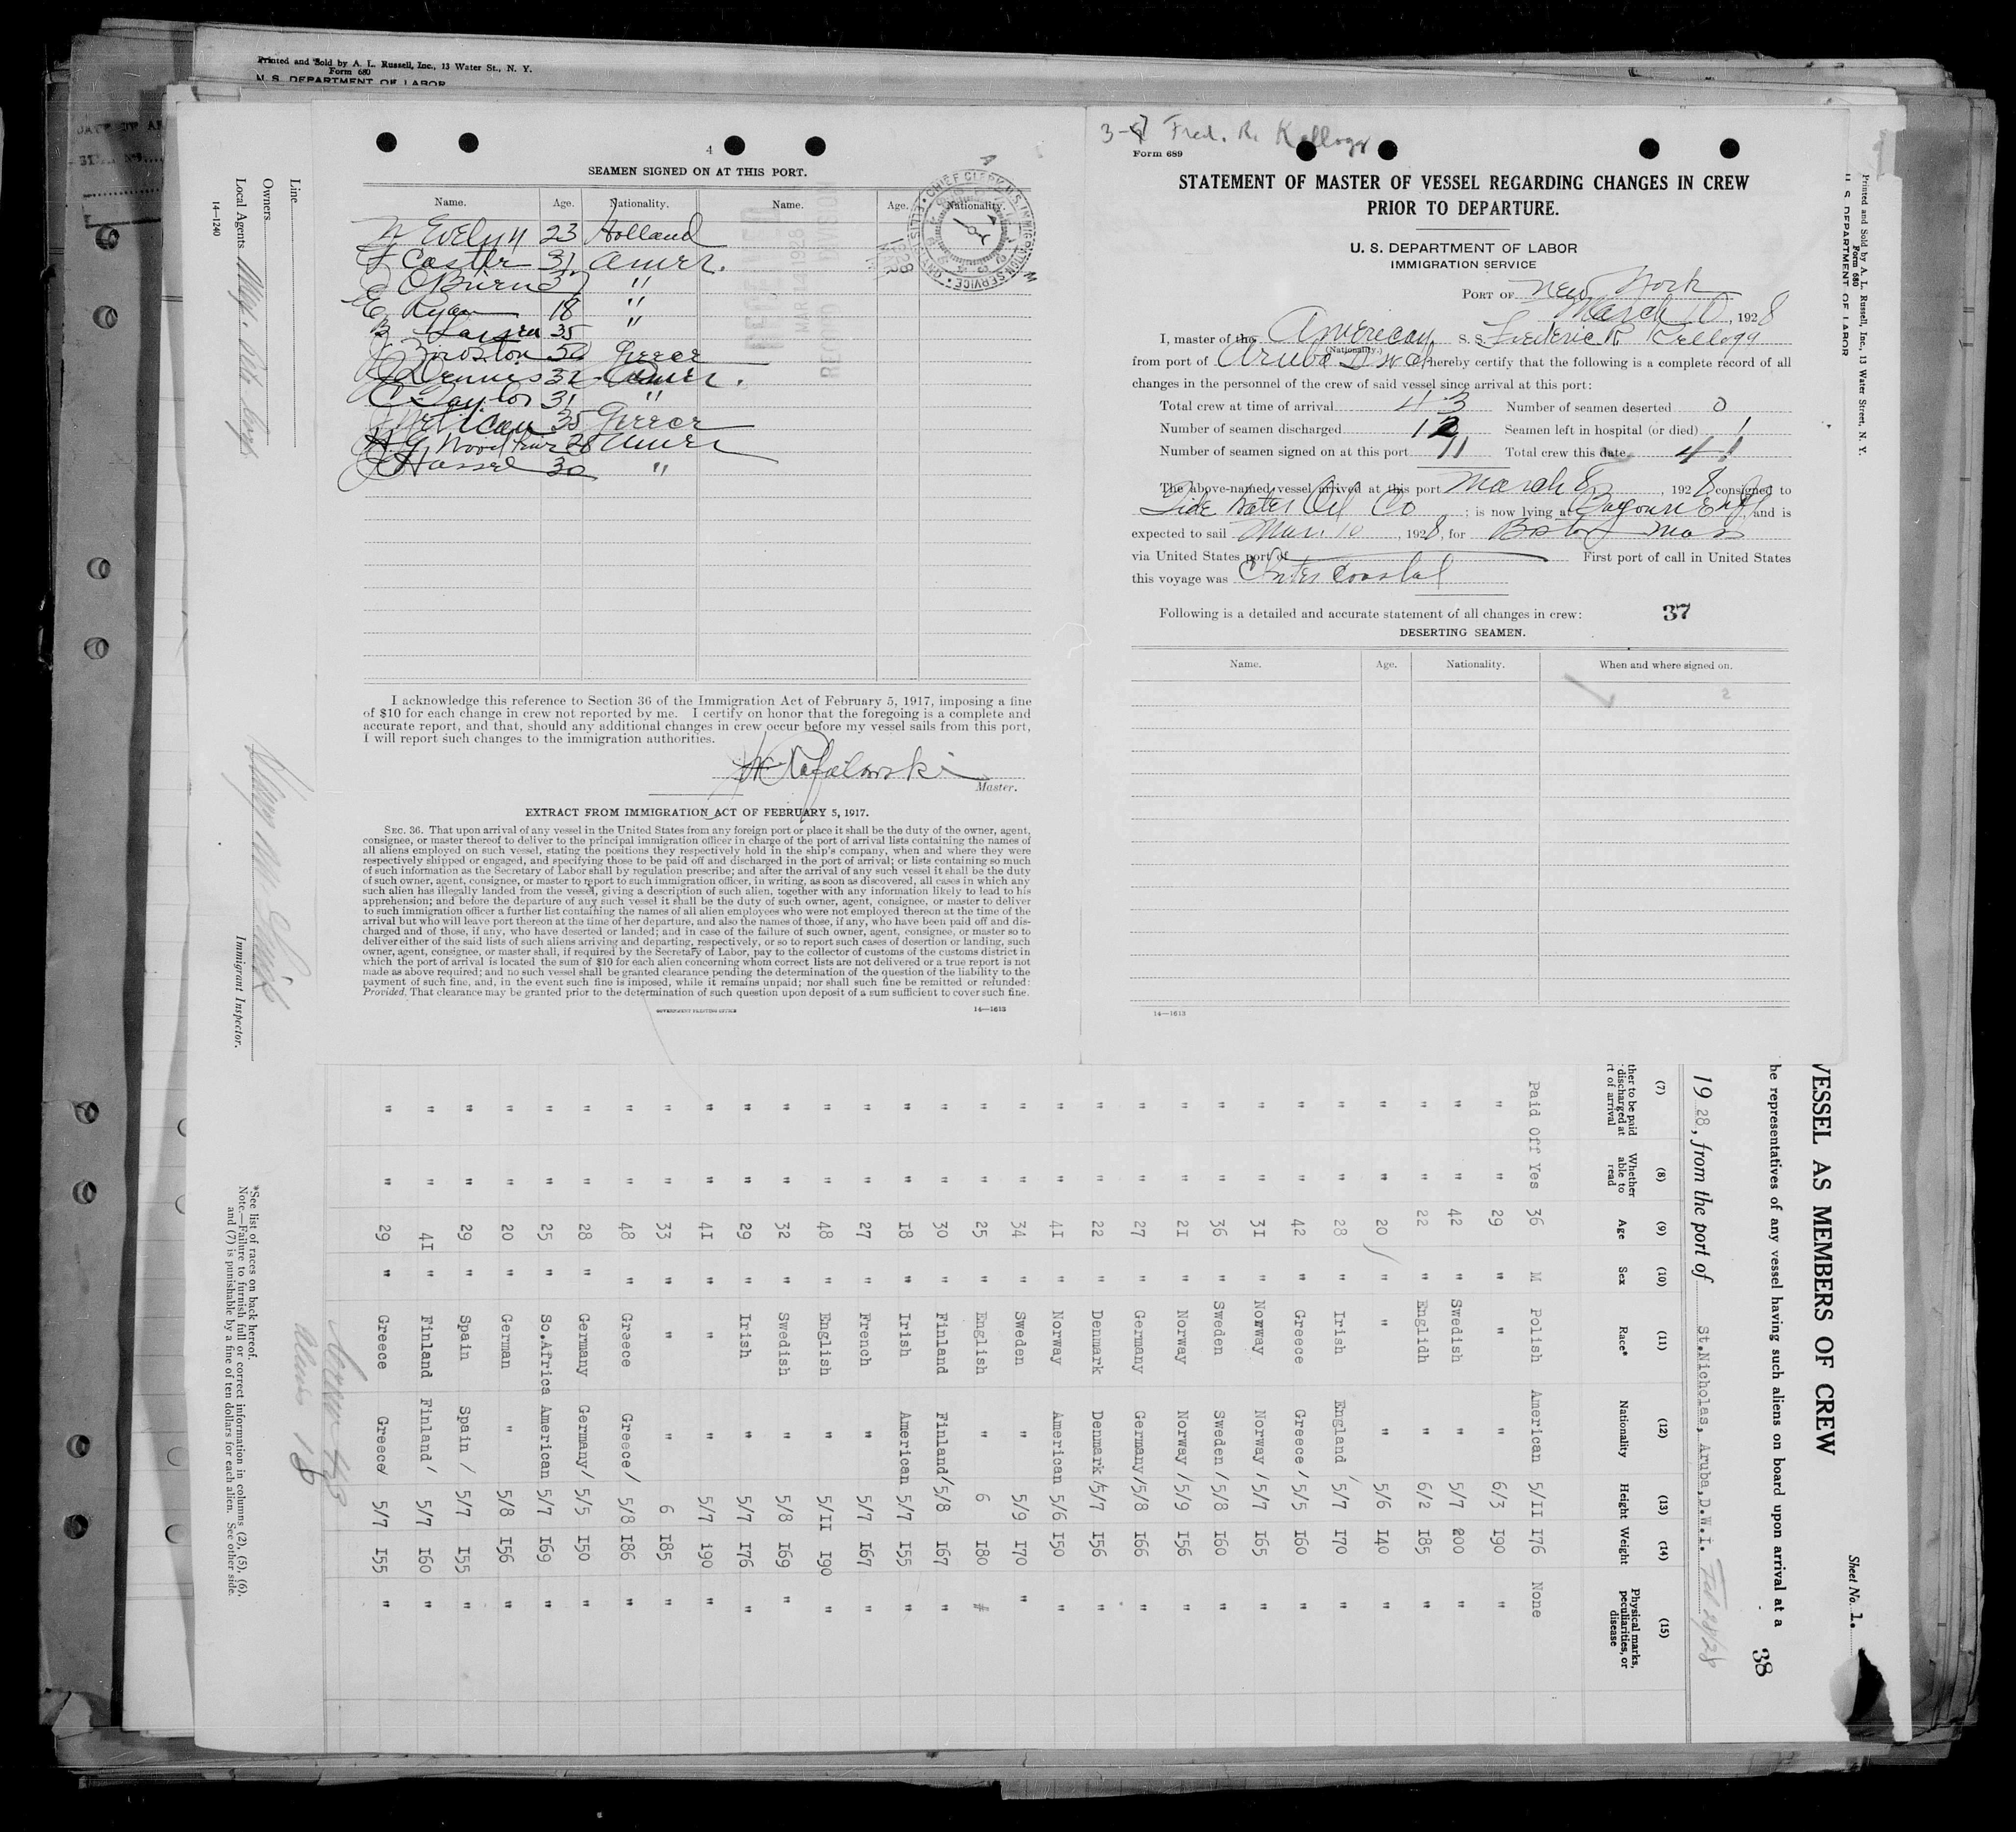 Printed and Sold by A. L. Russell, Inc., 13 Water St., N. Y.
Form 680
U. S. DEPARTMENT OF LABOR
4
SEAMEN SIGNED ON AT THIS PORT.
Name. Age. Nationality. Name. Age. Nationality.
N Evelyn 23 Holland
F Coster 31 Amer.
O'Brien 37 "
E Ryan 18 "
B Larsen 35 "
50 Greece
Dennis 32 Amer.
C Taylor 31 "
35 Greece
H G Woodruw 28 Amer
J Hassel 30 "
CHIEF CLERK U. S. IMMIGRATION SERVICE • ELLIS ISLAND, N.Y.
MAR 14 1928
I acknowledge this reference to Section 36 of the Immigration Act of February 5, 1917, imposing a fine
of $10 for each change in crew not reported by me. I certify on honor that the foregoing is a complete and
accurate report, and that, should any additional changes in crew occur before my vessel sails from this port,
I will report such changes to the immigration authorities.
Rafalowski
Master.
EXTRACT FROM IMMIGRATION ACT OF FEBRUARY 5, 1917.
SEC. 36. That upon arrival of any vessel in the United States from any foreign port or place it shall be the duty of the owner, agent,
consignee, or master thereof to deliver to the principal immigration officer in charge of the port of arrival lists containing the names of
all aliens employed on such vessel, stating the positions they respectively hold in the ship's company, when and where they were
respectively shipped or engaged, and specifying those to be paid off and discharged in the port of arrival; or lists containing so much
of such information as the Secretary of Labor shall by regulation prescribe; and after the arrival of any such vessel it shall be the duty
of such owner, agent, consignee, or master to report to such immigration officer, in writing, as soon as discovered, all cases in which any
such alien has illegally landed from the vessel, giving a description of such alien, together with any information likely to lead to his
apprehension; and before the departure of any such vessel it shall be the duty of such owner, agent, consignee, or master to deliver
to such immigration officer a further list containing the names of all alien employees who were not employed thereon at the time of the
arrival but who will leave port thereon at the time of her departure, and also the names of those, if any, who have been paid off and dis-
charged and of those, if any, who have deserted or landed; and in case of the failure of such owner, agent, consignee, or master so to
deliver either of the said lists of such aliens arriving and departing, respectively, or so to report such cases of desertion or landing, such
owner, agent, consignee, or master shall, if required by the Secretary of Labor, pay to the collector of customs of the customs district in
which the port of arrival is located the sum of $10 for each alien concerning whom correct lists are not delivered or a true report is not
made as above required; and no such vessel shall be granted clearance pending the determination of the question of the liability to the
payment of such fine, and, in the event such fine is imposed, while it remains unpaid; nor shall such fine be remitted or refunded:
Provided, That clearance may be granted prior to the determination of such question upon deposit of a sum sufficient to cover such fine.
GOVERNMENT PRINTING OFFICE 14—1613
3-8 Fred. R. Kellogg
Form 689
STATEMENT OF MASTER OF VESSEL REGARDING CHANGES IN CREW
PRIOR TO DEPARTURE.
U. S. DEPARTMENT OF LABOR
IMMIGRATION SERVICE
PORT OF New York
March 10, 1928
I, master of the American S. S. Frederick R Kellogg
(Nationality.)
from port of Aruba D W I hereby certify that the following is a complete record of all
changes in the personnel of the crew of said vessel since arrival at this port:
Total crew at time of arrival 43 Number of seamen deserted 0
Number of seamen discharged 12 Seamen left in hospital (or died) 1
Number of seamen signed on at this port 11 Total crew this date 41
The above-named vessel arrived at this port March 8, 1928 consigned to
Tide Water Oil Co; is now lying at Bayonne and is
expected to sail Mar. 10, 1928, for Boston Mass
via United States port of First port of call in United States
this voyage was Inter coastal
Following is a detailed and accurate statement of all changes in crew: 37
DESERTING SEAMEN.
Name. Age. Nationality. When and where signed on.
14—1613
Printed and Sold by A. L. Russell, Inc., 13 Water Street, N. Y.
Form 680
U. S. DEPARTMENT OF LABOR
Sheet No. 1.
VESSEL AS MEMBERS OF CREW
he representatives of any vessel having such aliens on board upon arrival at a 38
19 28, from the port of St.Nicholas, Aruba, D.W.I. Feb 28/28
(7) (8) (9) (10) (11) (12) (13) (14) (15)
ther to be paid discharged at rt of arrival Whether able to read Age Sex Race* Nationality Height Weight Physical marks, peculiarities, or disease
Paid Off Yes 36 M Polish American 5/11 176 None
" " 29 " " " 6/3 190 "
" " 42 " Swedish " 5/7 200 "
" " 22 " Englidh " 6/2 185 "
" " 20 " " " 5/6 140 "
" " 28 " Irish England / 5/7 170 "
" " 42 " Greece Greece / 5/5 160 "
" " 31 " Norway Norway / 5/7 165 "
" " 36 " Sweden Sweden / 5/8 160 "
" " 21 " Norway Norway / 5/9 156 "
" " 27 " Germany Germany / 5/8 166 "
" " 22 " Denmark Denmark / 5/7 156 "
" " 41 " Norway American 5/6 150 "
" " 34 " Sweden " 5/9 170 "
" " 25 " English " 6 180 "
" " 30 " Finland Finland / 5/8 167 "
" " 18 " Irish American 5/7 155 "
" " 27 " French " 5/7 167 "
" " 48 " English " 5/11 190 "
" " 32 " Swedish " 5/8 169 "
" " 29 " Irish " 5/7 176 "
" " 41 " " " 5/7 190 "
" " 33 " " " 6 185 "
" " 48 " Greece Greece / 5/8 186 "
" " 28 " Germany Germany / 5/5 150 "
" " 25 " So.Africa American 5/7 169 "
" " 20 " German " 5/8 156 "
" " 29 " Spain Spain / 5/7 155 "
" " 41 " Finland Finland / 5/7 160 "
" " 29 " Greece Greece / 5/7 155 "
Crew 43
Aliens 18
Line
Owners
Local Agents
14—1240
Immigrant Inspector.
*See list of races on back hereof.
Note.—Failure to furnish full or correct information in columns (2), (5), (6),
and (7) is punishable by a fine of ten dollars for each alien. See other side.